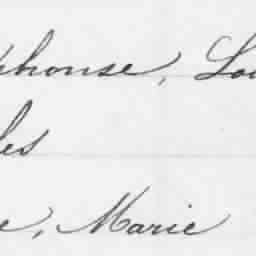 phonse, Lou
les
e, Marie